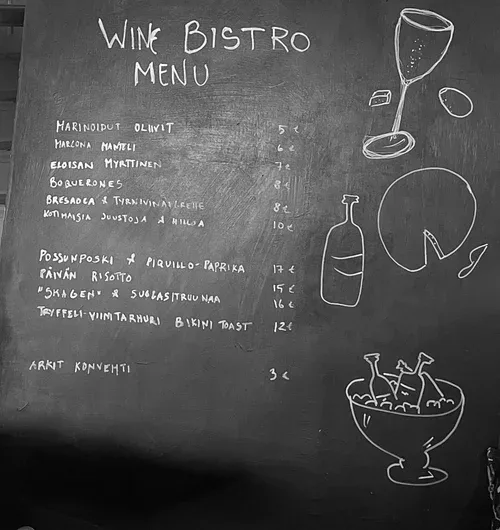 WINE BISTRO
MENU
MARINOIDUT OLIIVIT 5 €
MARCONA MANTELI 6 €
ELOISAN MYRTTINEN 7 €
BOQUERONES 8 €
BRESAOLA & TYRNIVINAIGRETTE 8 €
KOTIMAISIA JUUSTOJA & HILLOA 10 €
POSSUNPOSKI & PIQUILLO-PAPRIKA 17 €
PÄIVÄN RISOTTO 15 €
"SKAGEN" & SUOLASITRUUNAA 16 €
TRYFFELI-VIINITARHURI BIKINI TOAST 12 €
ARKIT KONVEHTI 3 €